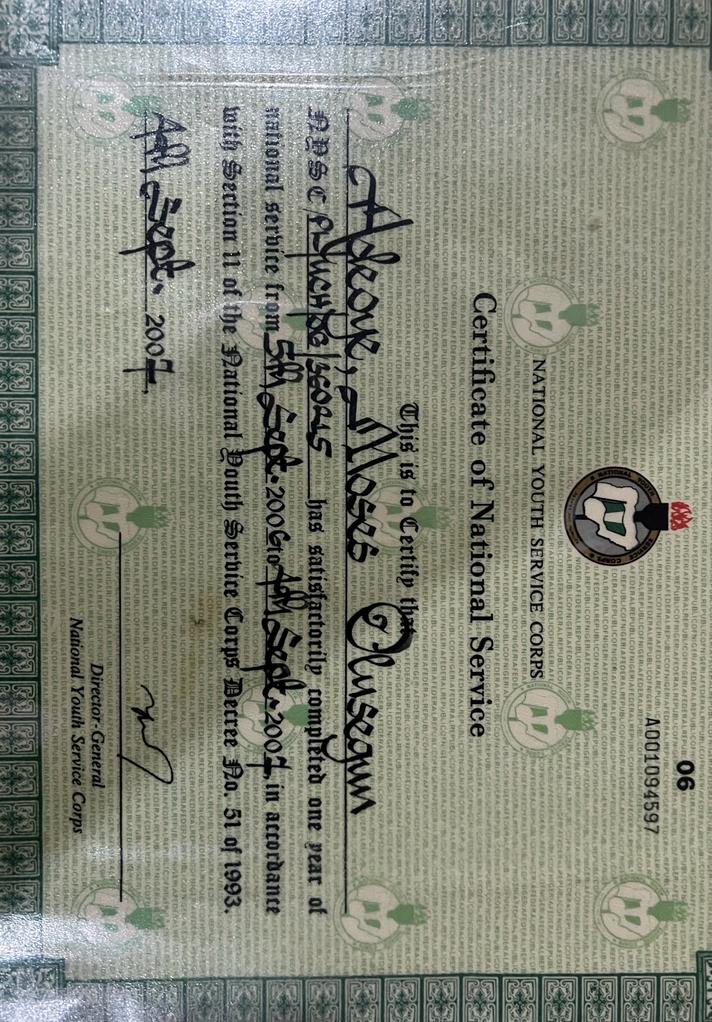 06
A001094597
NATIONAL YOUTH SERVICE CORPS
Certificate of National Service
This is to Certify that
Adeoye, Moses Olusegun
NYSC/ has satisfactorily completed one year of
national service from 5th Sept. 2006 to 4th Sept. 2007 in accordance
with Section 11 of the National Youth Service Corps Decree No. 51 of 1993.
4th Sept. 2007.
Director-General
National Youth Service Corps